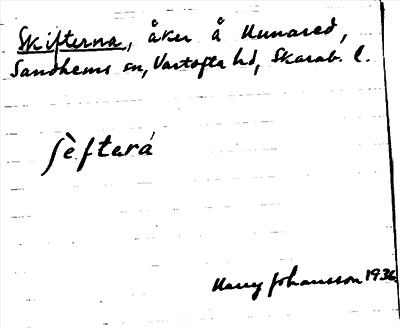 Skifterna, åker å Kunared,
Sandhems sn, Vartofta hd, Skarab. l.
ʃèfterá
Harry Johansson 1936